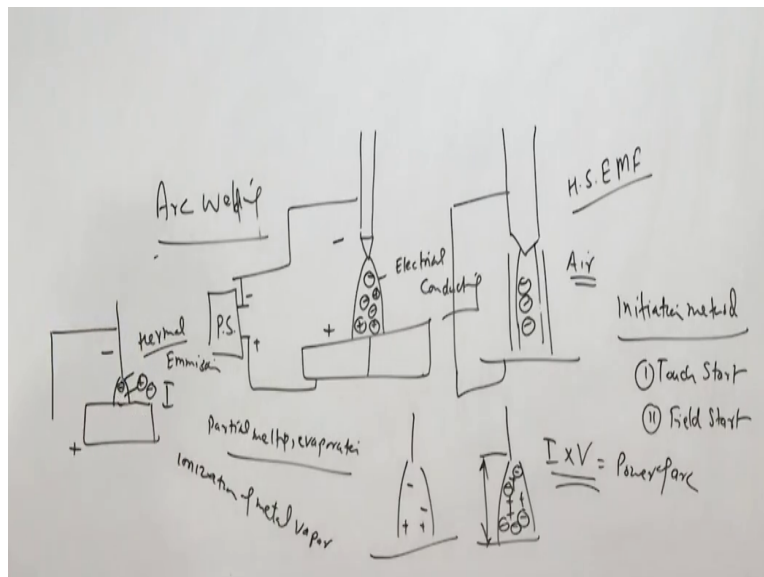 Arc Welding
H.S.EMF
Electrical
Conducting
Air
P.S.
-
+
-
+
Thermal
Emmision
-
I
+
Initiation method
I Touch Start
II Field Start
Partial meltg, evaporation
Ionization of metal vapor
I x V = Power of arc